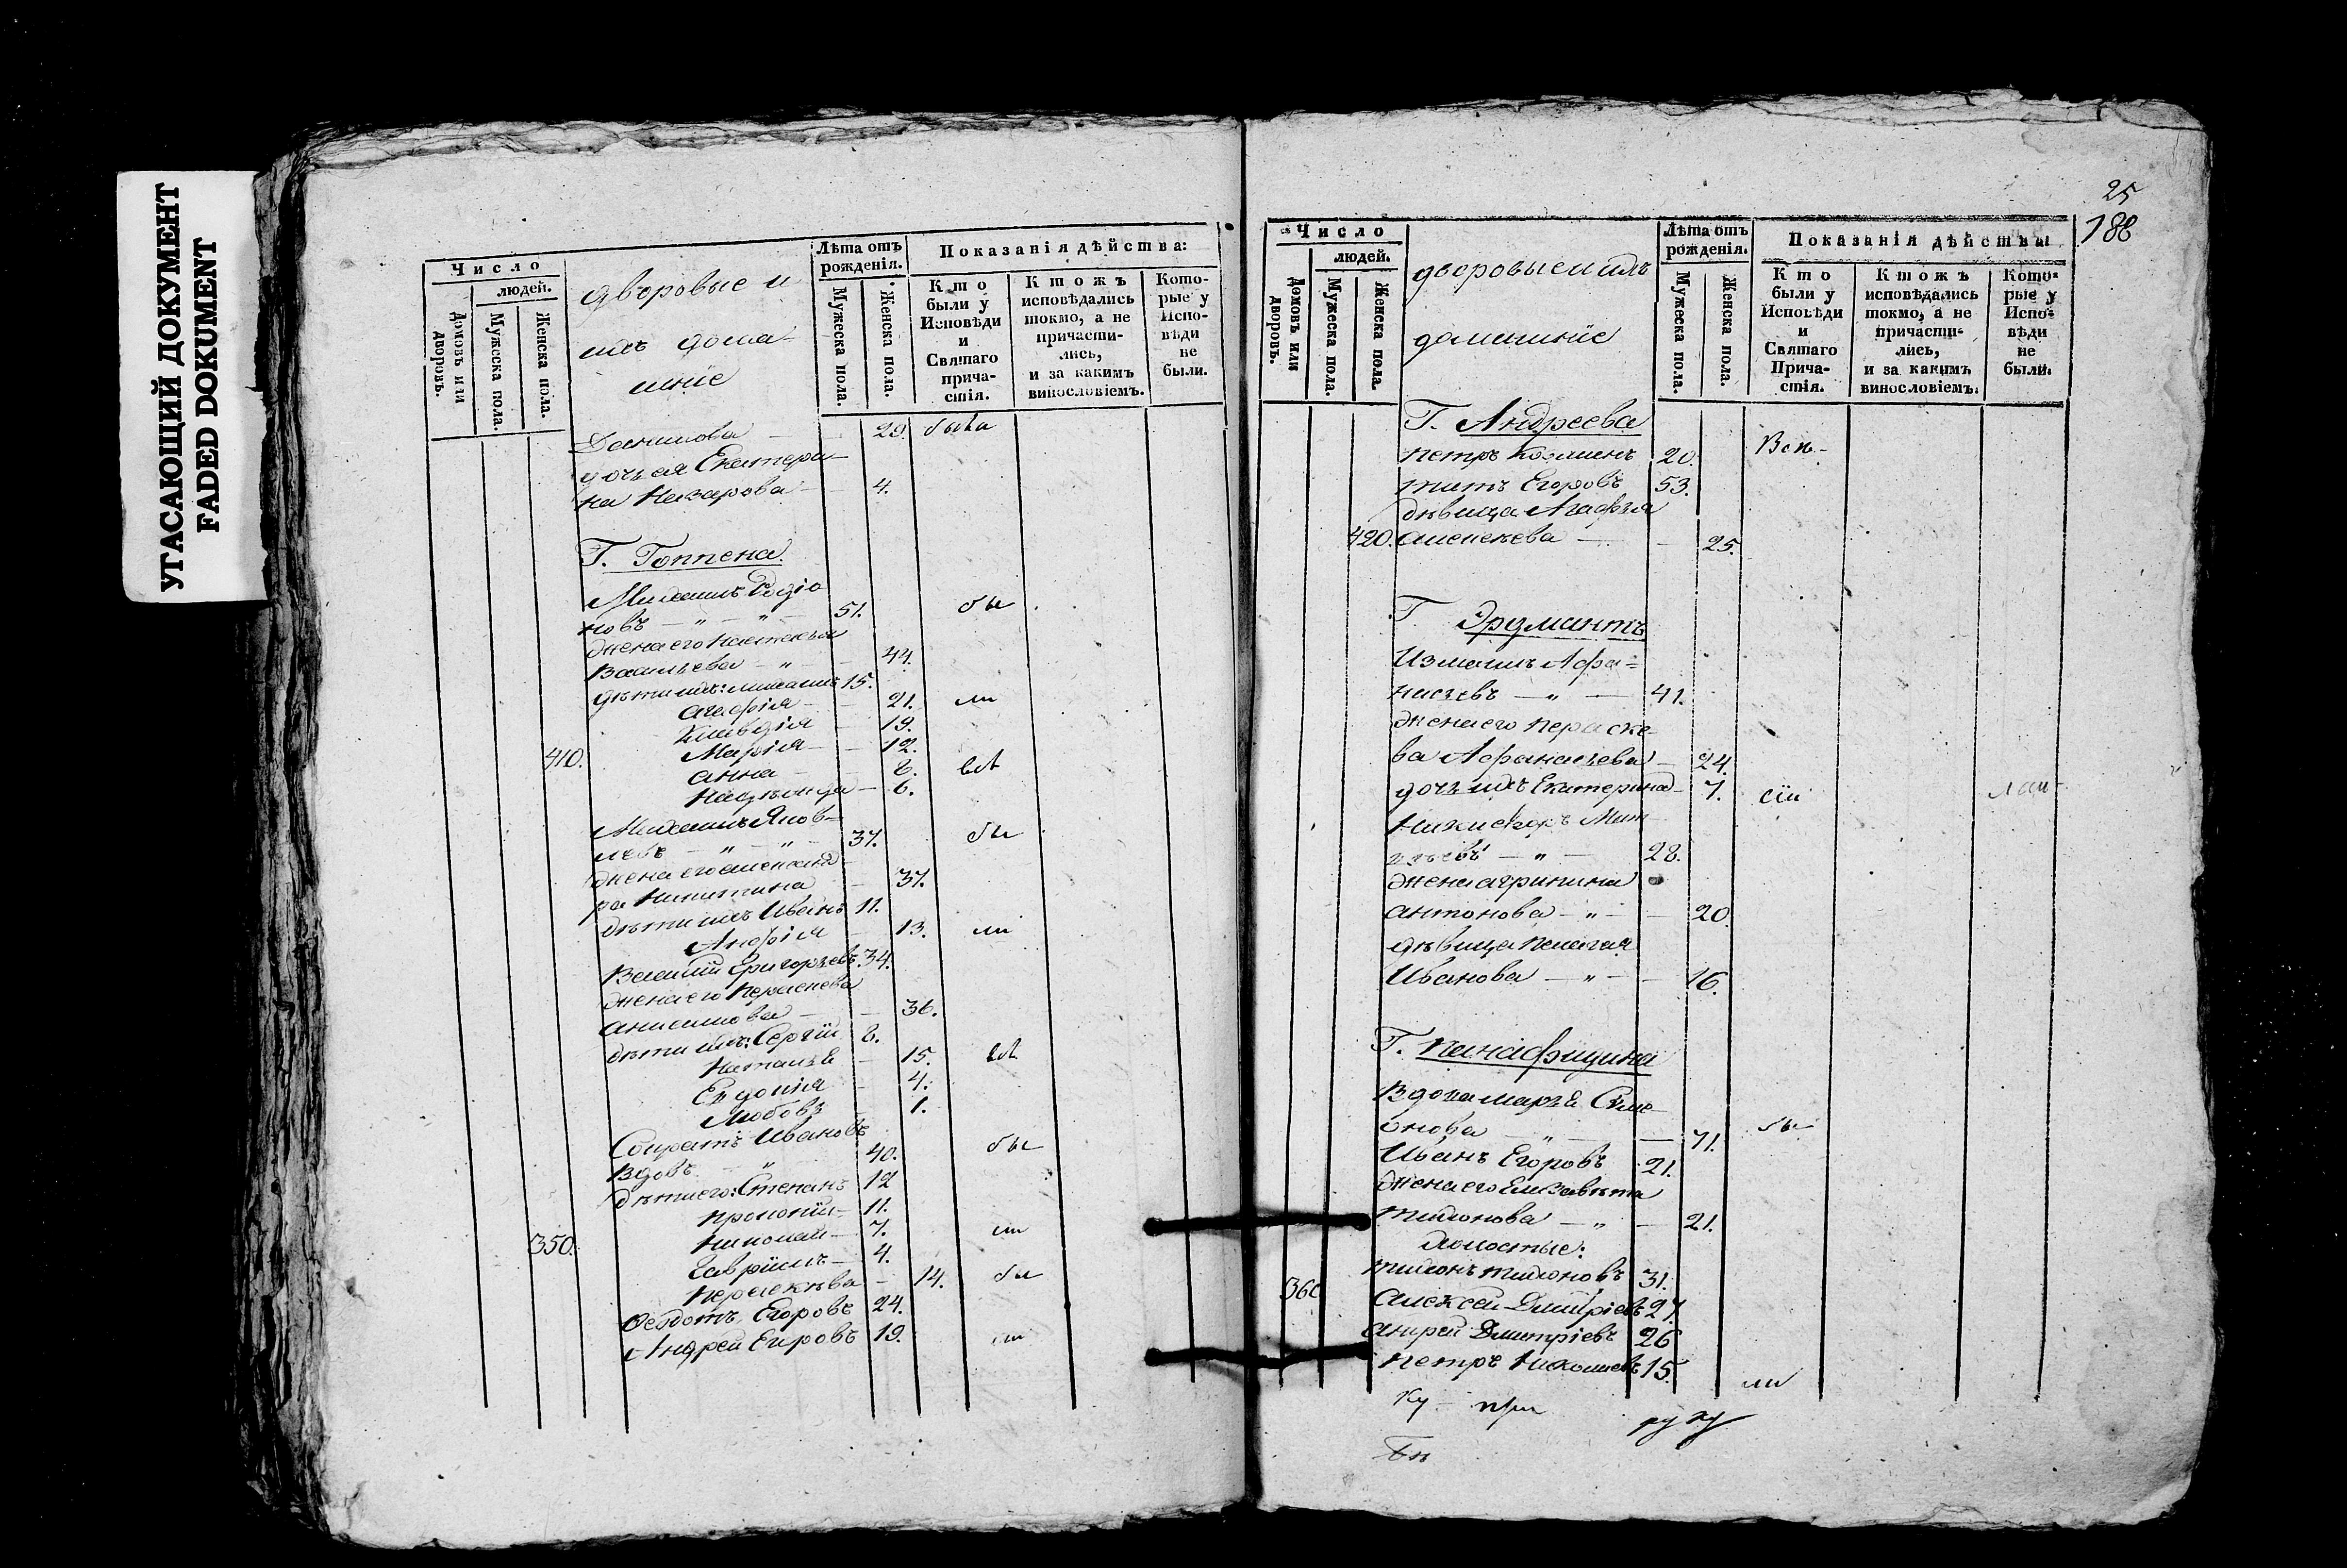 УГАСАЮЩИЙ ДОКУМЕНТ
FADED DOKUMENT
Число
людей.
Домовъ или дворовъ.
Мужеска пола.
Женска пола.
дворовые и
ихъ дома-
шніе
Лѣта отъ рожденія.
Мужеска пола.
Женска пола.
Показанія дѣйства:
Кто были у Исповѣди и Святаго прича- стія.
Ктожъ исповѣдались токмо, а не причасти- лись, и за какимъ винословіемъ.
Кото- рые у Испо- вѣди не были.
Данилова 29. была
дочь ея Екатери-
на Назарова 4.
Г. Гоппена
Михаилъ Родіо
новъ — " — " — 51. бы
жена его Настасья
Васильева — " — 44.
дѣти ихъ: Михаилъ 15.
Агафія — 21. ли
Клавдія — 19.
410. Марія — 12.
Анна — 8. всѣ
Надежда — 6.
Михаилъ Яков-
левъ — " — " — 37. бы
жена его Александ-
ра Никитина 37.
дѣти ихъ Иванъ 11.
Анфія 13. ли
Василій Григорьевъ 34.
жена его Параскева
Анисимова — 36.
дѣти ихъ: Сергій 8.
Наталья — 15. всѣ
Евдокія — 4.
Любовь — 1.
Сократъ Ивановъ
Вдовъ " 40. бы
дѣти его: Степанъ 12
Прокопій — 11.
Николай — 7. ли
350. Гавріилъ — 4.
Параскева — 14. бы
Ѳедотъ Егоровъ 24.
Андрей Егоровъ 19. ли
25
188
Число
людей.
Домовъ или дворовъ.
Мужеска пола.
Женска пола.
дворовые и ихъ
домашніе
Лѣта отъ рожденія.
Мужеска пола.
Женска пола.
Показанія дѣйства
Кто были у Исповѣди и Святаго Прича- стія.
Ктожъ исповѣдались токмо, а не причасти- лись, и за какимъ винословіемъ.
Кото- рые у Испо- вѣди не были.
Г. Андреева
Петръ Козминъ 20. Всѣ
Титъ Егоровъ 53.
дѣвица Агафья
420. Алексѣева — 25.
Г Эрдмантъ
Измаилъ Афа=
насьевъ — " — 41.
жена его Параске-
ва Афанасьева — 24.
дочь ихъ Екатерина 7. сіи
Никифоръ Мат-
вѣевъ — " — 28.
жена Агрипина
Антонова — " — 20.
дѣвица Пелагая
Иванова — " — 16.
Г. Панафидина
Вдова Марья Сѵме-
онова — " — 71. бы
Иванъ Егоровъ 21.
жена его Елизавета
Тихонова — " — 21.
Холостые:
Тихонъ Тихоновъ 31.
360 Алексѣй Дмитріевъ 27.
Андрей Дмитріевъ 26
Петръ Николаевъ 15. ли
Ку при руку